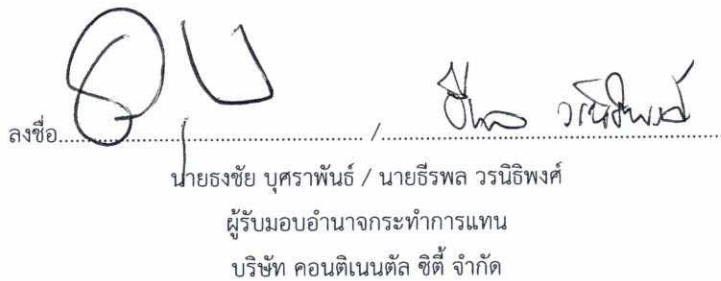 ลงชื่อ................................................ / ................................................
นายธงชัย บุศราพันธ์ / นายธีรพล วรนิธิพงศ์
ผู้รับมอบอำนาจกระทำการแทน
บริษัท คอนติเนนตัล ซิตี้ จำกัด